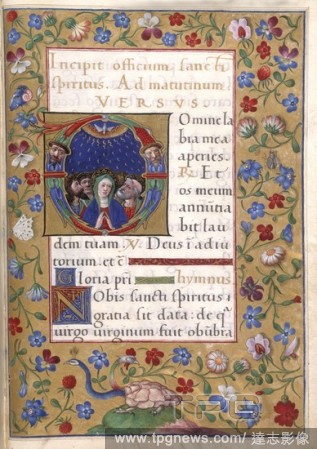 Incipit officium sancti
spiritus. Ad matutinum
VERSUS
Omine la
bia mea
aperies.
R. Et
os meum
annūtia
bit lau
dem tuam V. Deus ī adiu
torium. et c̄
Gloria pri hymnus.
Nobis sancti spiritus
gratia sit data: de q̄
virgo virginum fuit obūbra
TPG
www.tpgnews.com/ 達志影像